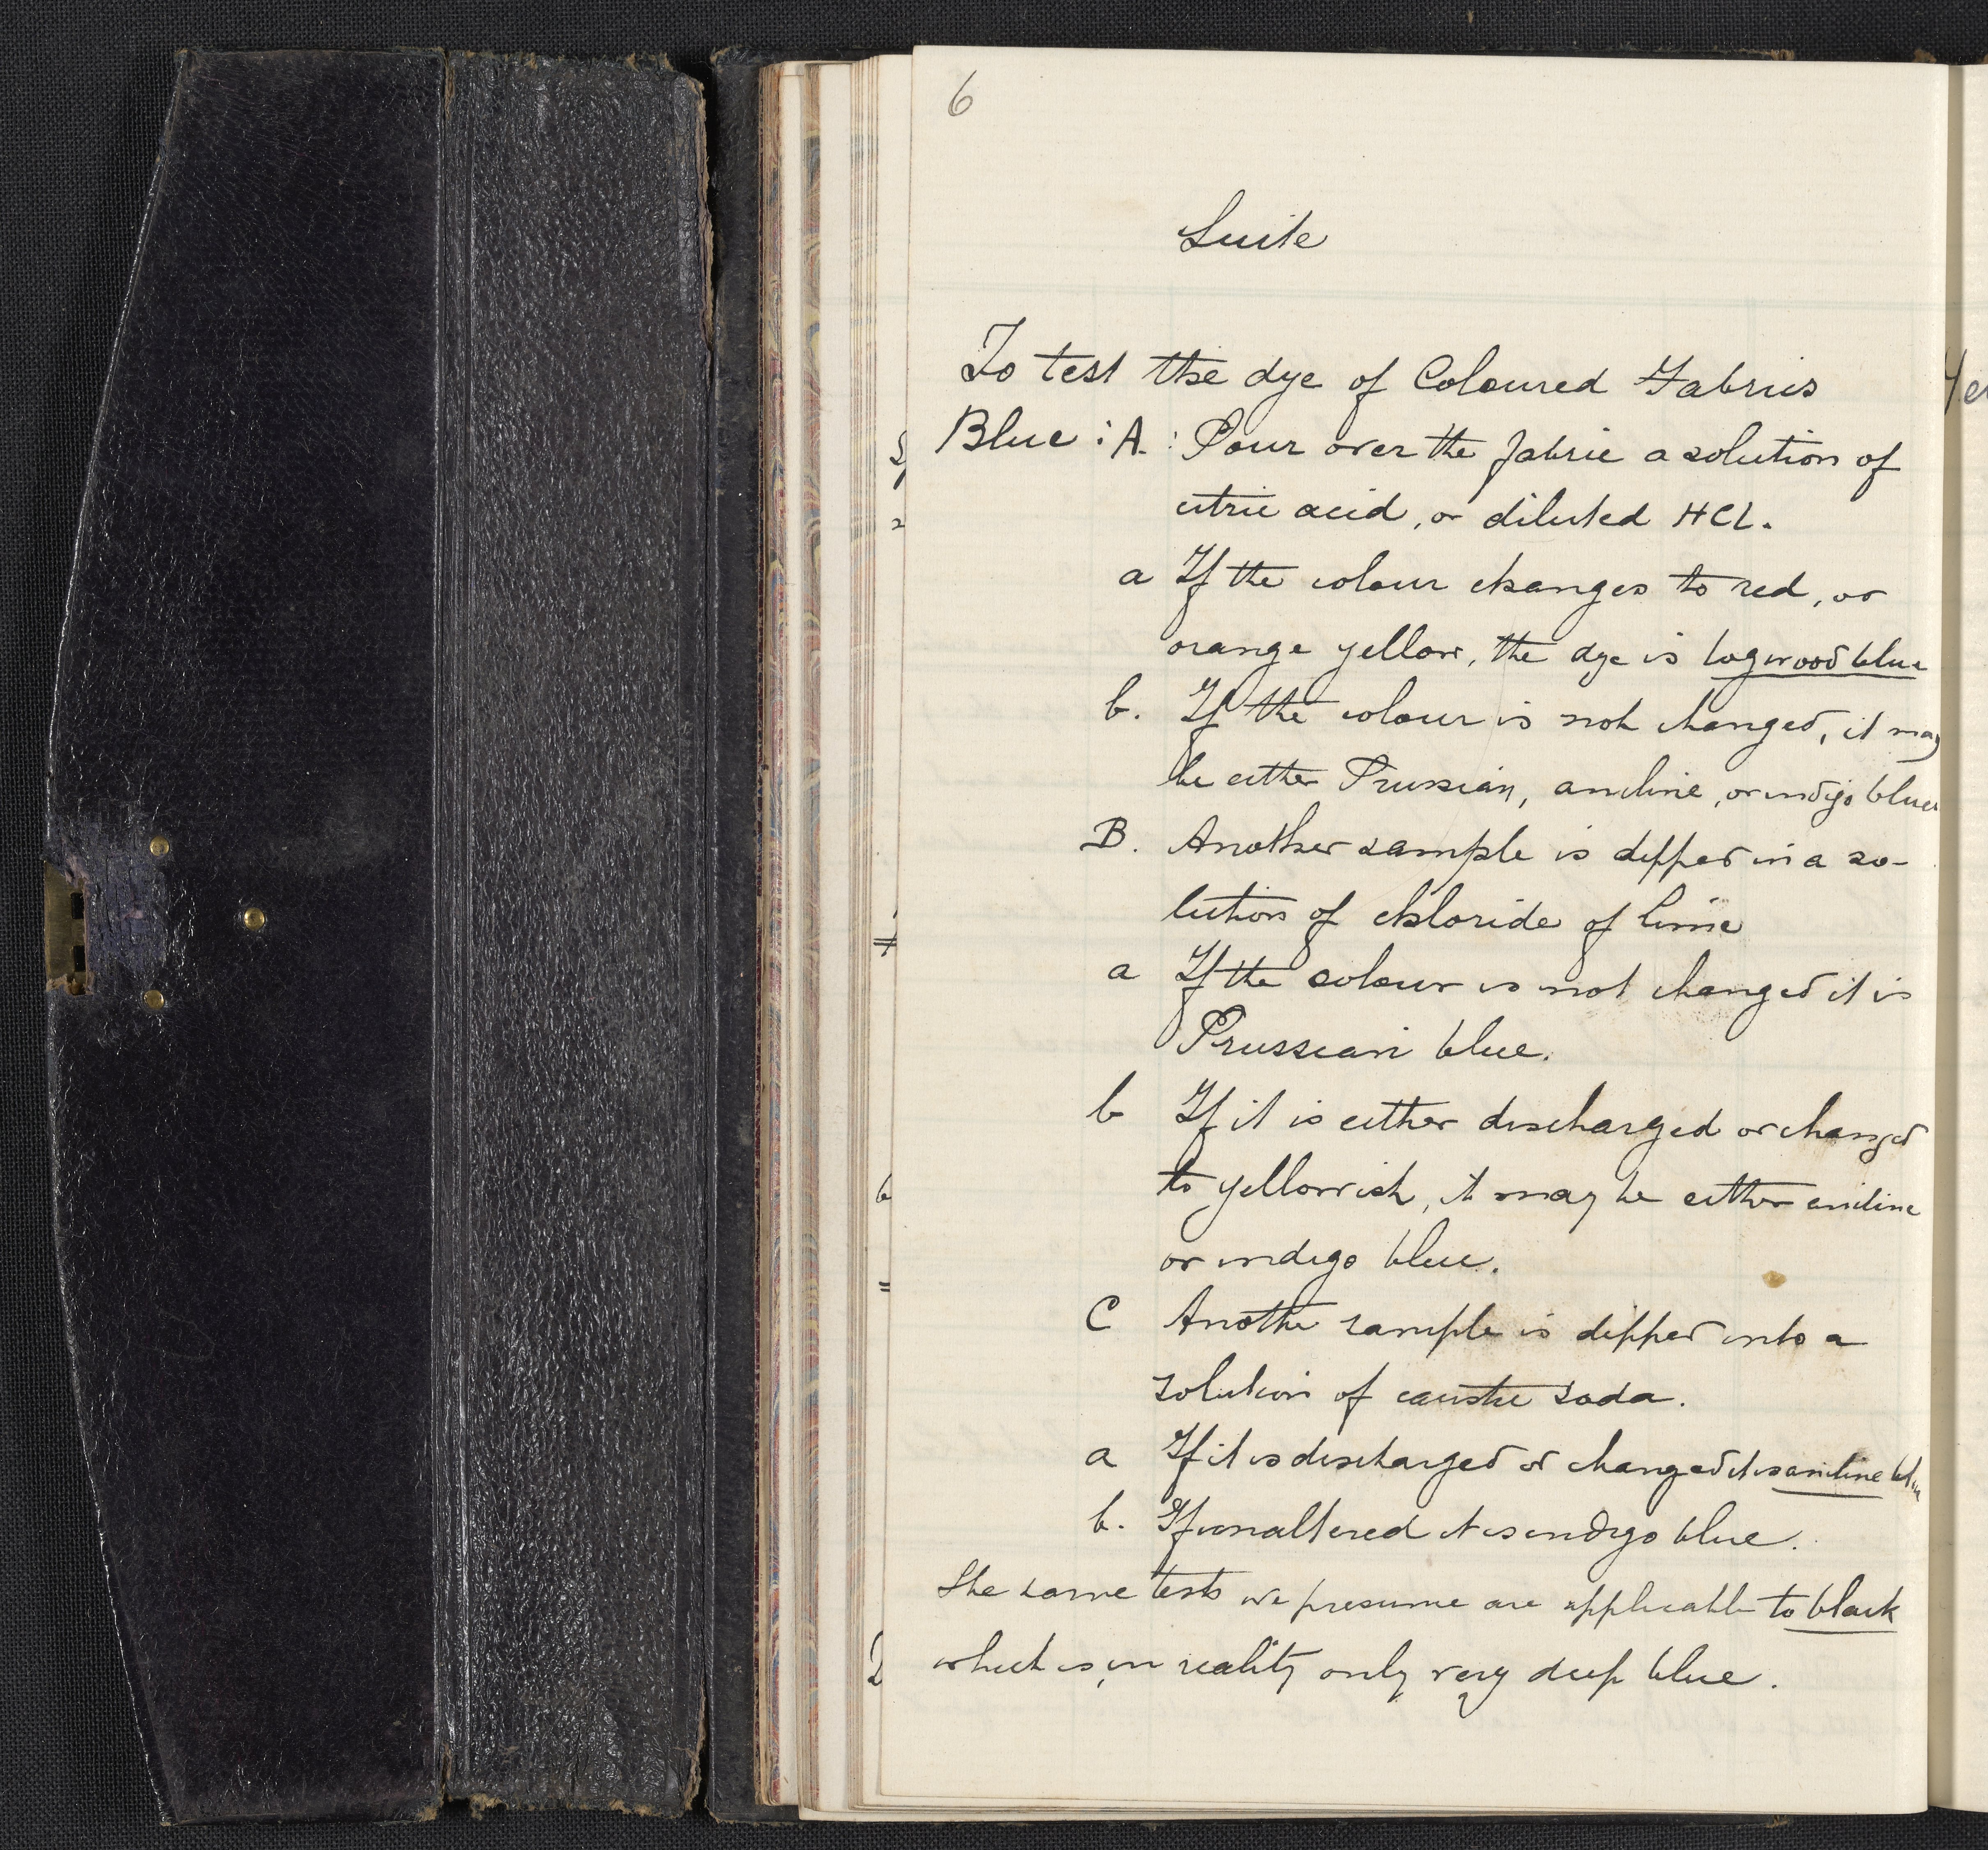 6
Suite
To test the dye of Coloured Fabrics
Blue : A. : Pour over the fabric a solution of
citric acid, or diluted HCl.
a If the colour changes to red, or
orange yellow, the dye is logwood blue
b. If the colour is not changed, it may
be either Prussian, aniline, or indigo blue
B. Another sample is dipped in a so-
lution of chloride of lime
a If the colour is not changed it is
Prussian blue.
b If it is either discharged or changed
to yellowish, it may be either aniline
or indigo blue.
C Another sample is dipped into a
solution of caustic soda.
a If it is discharged or changed it is aniline blue
b. If unaltered it is indigo blue.
The same tests we presume are applicable to black
which is, in reality only very deep blue.